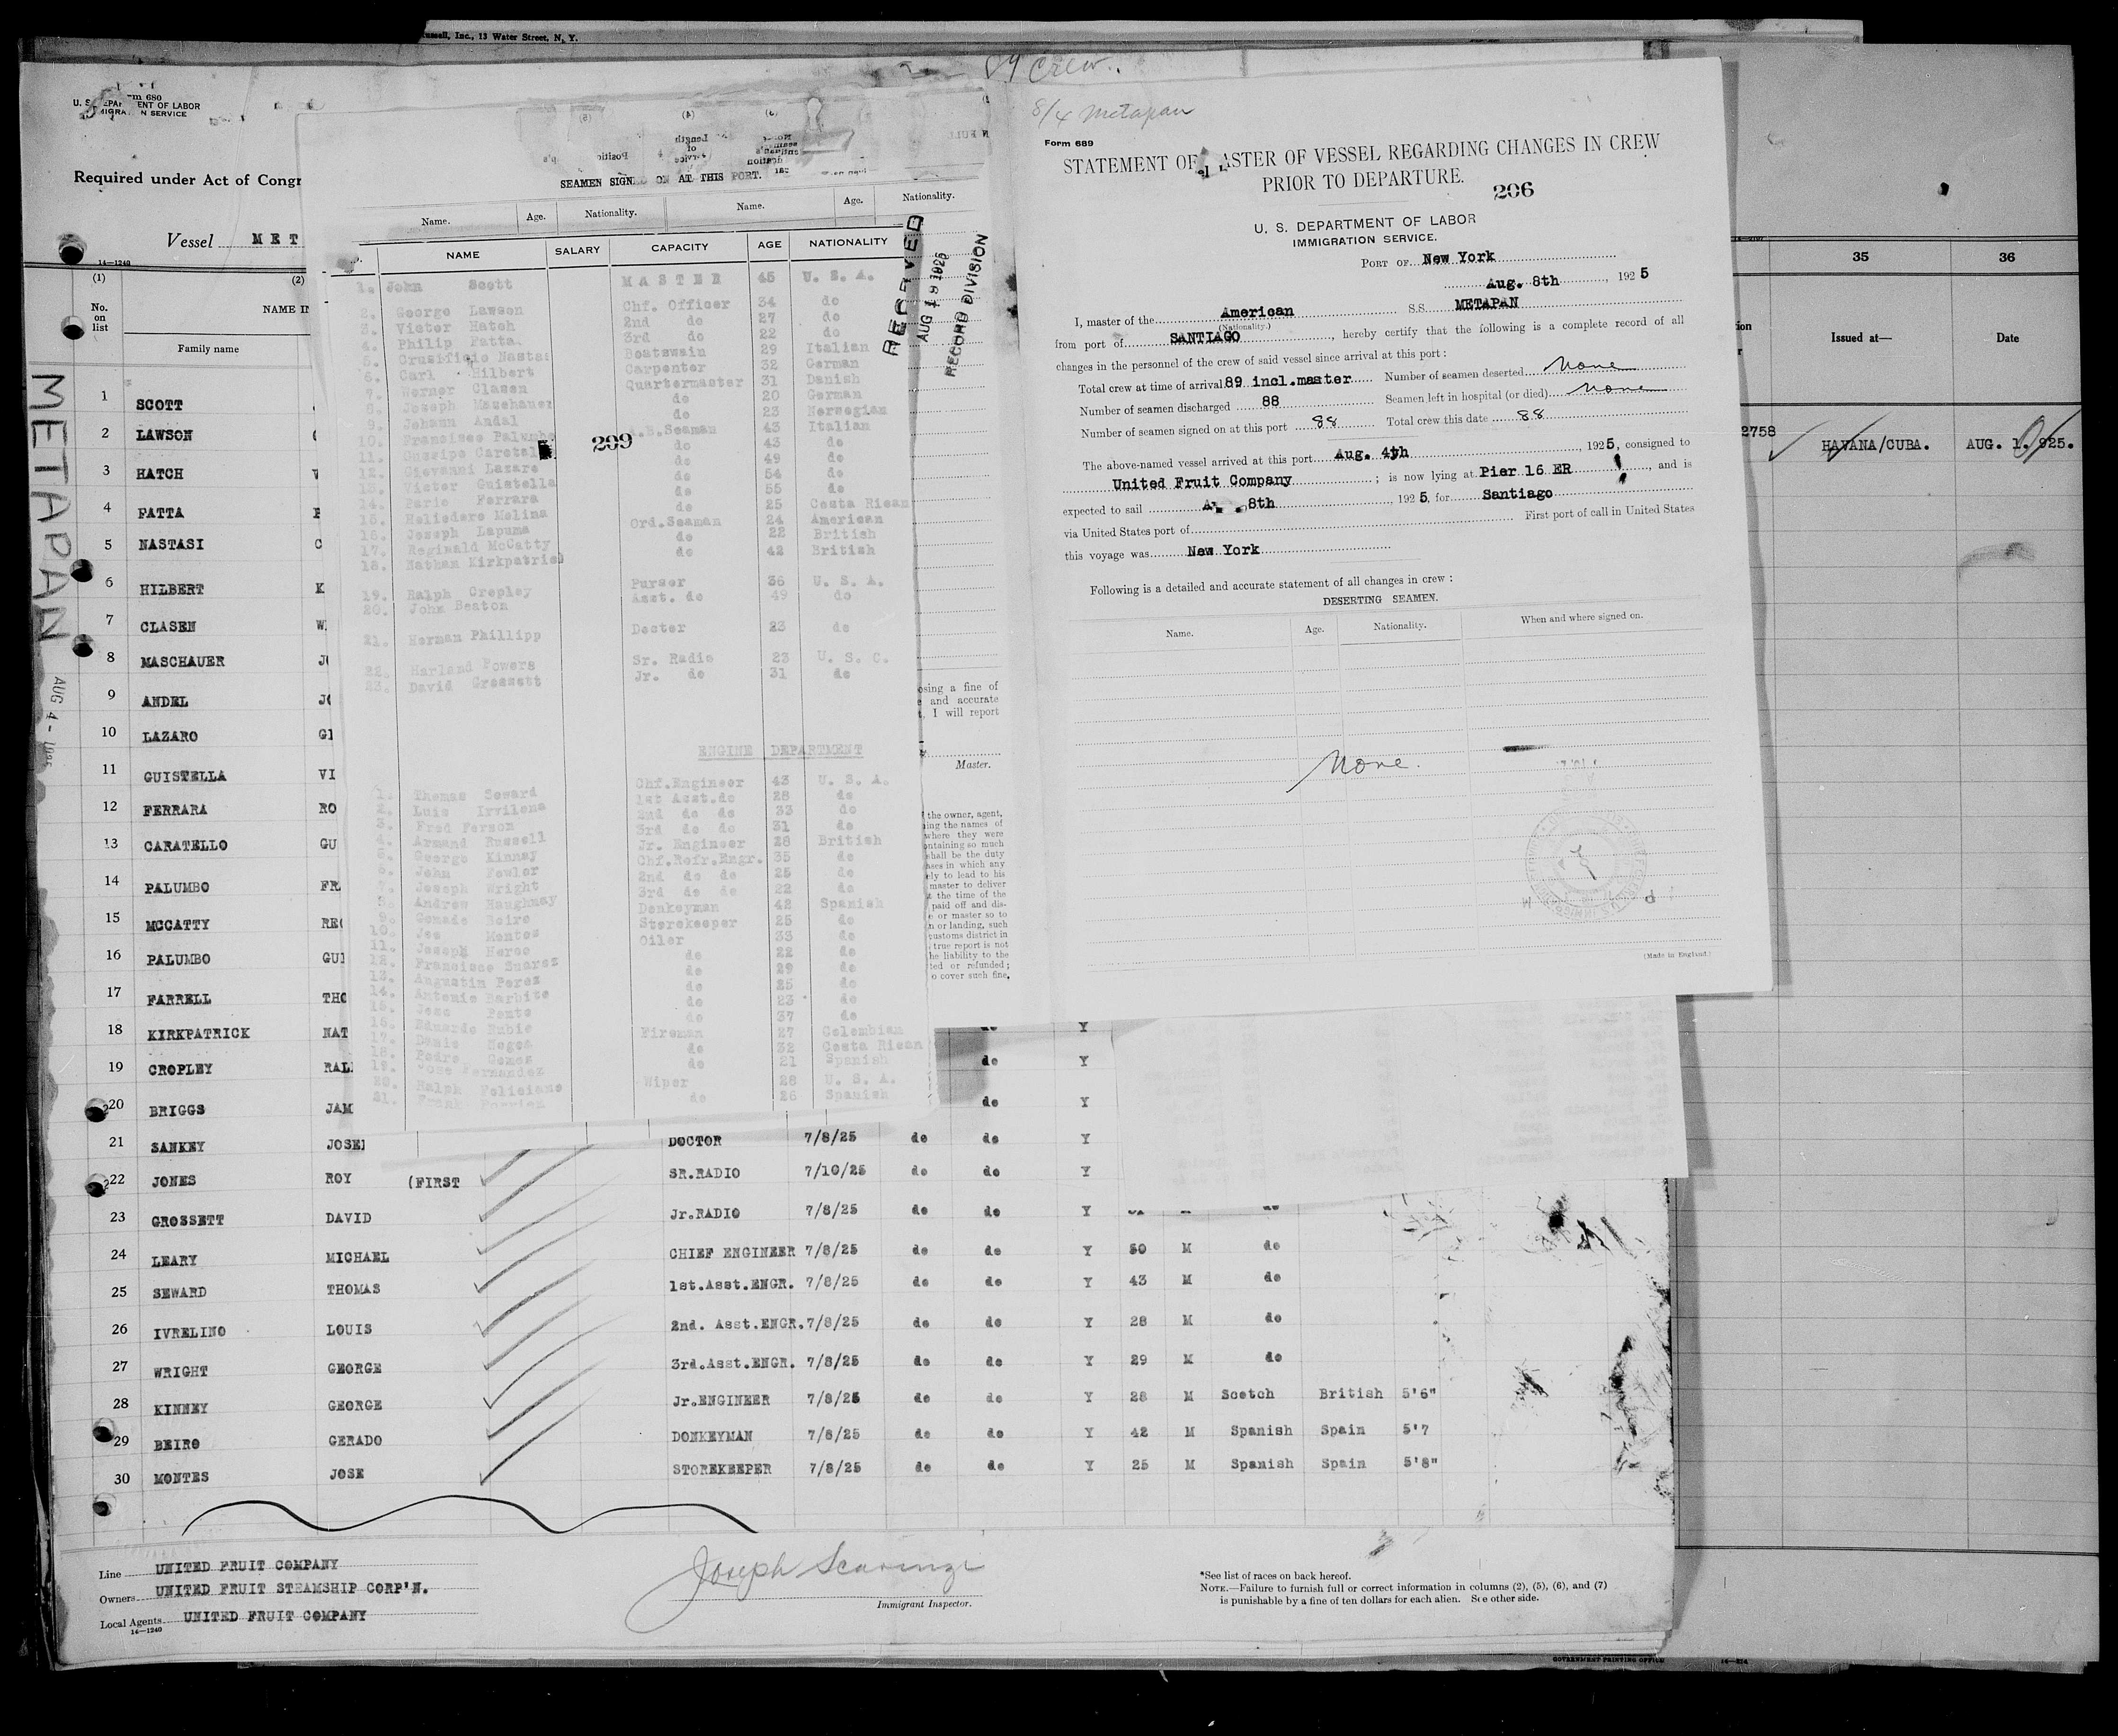 Russell, Inc., 13 Water Street, N. Y.
89 Crew.
Form 680
U. S. DEPARTMENT OF LABOR
IMMIGRATION SERVICE
Required under Act of Congr
Vessel MET
14—1240
(1) (2)
No. on list
NAME IN
Family name
METAPAN
AUG 4 - 1925
1 SCOTT
2 LAWSON
3 HATCH
4 PATTA
5 NASTASI
6 HILBERT K
7 CLASEN W
8 MASCHAUER JO
9 ANDEL JO
10 LAZARO GI
11 GUISTELLA VI
12 FERRARA RO
13 CARATELLO GU
14 PALUMBO FR
15 MCCATTY REG
16 PALUMBO GUI
17 FARRELL THO
18 KIRKPATRICK NAT do Y
19 CROPLEY RAL do Y
20 BRIGGS JAM do Y
21 SANKEY JOSE DOCTOR 7/8/25 do do Y
22 JONES ROY (FIRST SR.RADIO 7/10/25 do do Y
23 GROSSETT DAVID Jr.RADIO 7/8/25 do do Y
24 LEARY MICHAEL CHIEF ENGINEER 7/8/25 do do Y 50 M do
25 SEWARD THOMAS 1st.Asst.ENGR. 7/8/25 do do Y 43 M do
26 IVRELINO LOUIS 2nd. Asst.ENGR. 7/8/25 do do Y 28 M do
27 WRIGHT GEORGE 3rd.Asst.ENGR. 7/8/25 do do Y 29 M do
28 KINNEY GEORGE Jr.ENGINEER 7/8/25 do do Y 28 M Scotch British 5'6"
29 BEIRO GERADO DONKEYMAN 7/8/25 do do Y 42 M Spanish Spain 5'7
30 MONTES JOSE STOREKEEPER 7/8/25 do do Y 25 M Spanish Spain 5'8"
Line UNITED FRUIT COMPANY
Owners UNITED FRUIT STEAMSHIP CORP'N.
Local Agents UNITED FRUIT COMPANY
14—1240
Joseph Scarinzi
Immigrant Inspector.
*See list of races on back hereof.
NOTE.—Failure to furnish full or correct information in columns (2), (5), (6), and (7)
is punishable by a fine of ten dollars for each alien. See other side.
GOVERNMENT PRINTING OFFICE
SEAMEN SIGNED ON AT THIS PORT.
Name. Age. Nationality. Name. Age. Nationality.
NAME SALARY CAPACITY AGE NATIONALITY
1. John Scott MASTER 45 U. S. A.
2. George Lawson Chf. Officer 34 do
3. Victor Hatch 2nd do 27 do
4. Philip Patta 3rd do 22 do
5. Crusificio Nastas Boatswain 29 Italian
6. Carl Hilbert Carpenter 32 German
7. Werner Clasen Quartermaster 31 Danish
8. Joseph Maschauer do 20 German
9. Johann Andal do 23 Norwegian
10. Francisco Palumbo A.B.Seaman 43 Italian
11. Guseipe Caratel do 43 do
12. Giovanni Lazaro do 49 do
13. Victor Guistella do 54 do
14. Ferrara do 55 do
15. Heliodoro Molina do 25 Costa Rican
16. Joseph Lapuma Ord.Seaman 24 American
17. Reginald McCatty do 22 British
18. Nathan Kirkpatrick do 42 British
19. Ralph Cropley Purser 36 U. S. A.
20. John Beaton Asst. do 49 do
21. Herman Phillipp Doctor 23 do
22. Harland Powers Sr. Radio 23 U. S. C.
23. David Grossett Jr. do 31 do
209
ENGINE DEPARTMENT
1. Thomas Seward Chf.Engineer 43 U. S. A.
2. Luis Irvilena 1st Asst.do 28 do
3. Fred Ferson 2nd do do 33 do
4. Armand Russell 3rd do do 31 do
5. George Kinney Jr. Engineer 28 British
6. John Fowler Chf.Refr.Engr. 35 do
7. Joseph Wright 2nd do do 25 do
8. Andrew Haughney 3rd do do 22 do
9. Gerado Beiro Donkeyman 42 Spanish
10. Jos Montes Storekeeper 25 do
11. Joseph Herce Oiler 33 do
12. Francisco Suarez do 22 do
13. Augustin Perez do 29 do
14. Antonio Barbito do 25 do
15. Jose Ponte do 23 do
16. Eduardo Rubio do 37 do
17. Fireman 27 Colombian
18. Pedro Gomez do 32 Costa Rican
19. Jose Fernandez do 21 Spanish
20. Ralph Feliciano Wiper 28 U. S. A.
21. Frank do 26 Spanish
RECEIVED
AUG 1925
RECORD DIVISION
osing a fine of
e and accurate
t, I will report
Master.
the owner, agent,
ing the names of
where they were
ontaining so much
shall be the duty
ases in which any
ely to lead to his
master to deliver
t the time of the
paid off and dis-
e or master so to
n or landing, such
customs district in
true report is not
he liability to the
ted or refunded;
o cover such fine.
8/4 Metapan
Form 689
STATEMENT OF MASTER OF VESSEL REGARDING CHANGES IN CREW
PRIOR TO DEPARTURE.
206
U. S. DEPARTMENT OF LABOR
IMMIGRATION SERVICE.
PORT OF New York
Aug. 8th, 1925
I, master of the American S.S. METAPAN
(Nationality.)
from port of SANTIAGO, hereby certify that the following is a complete record of all
changes in the personnel of the crew of said vessel since arrival at this port:
Total crew at time of arrival 89 incl.master Number of seamen deserted None
Number of seamen discharged 88 Seamen left in hospital (or died) None
Number of seamen signed on at this port 88 Total crew this date 88
The above-named vessel arrived at this port Aug. 4th, 1925, consigned to
United Fruit Company; is now lying at Pier 16 ER, and is
expected to sail 8th, 1925, for Santiago
via United States port of First port of call in United States
this voyage was New York
Following is a detailed and accurate statement of all changes in crew:
DESERTING SEAMEN.
Name. Age. Nationality. When and where signed on.
None.
(Made in England.)
35 36
Issued at— Date
2758 HAVANA/CUBA. AUG. 1. 925.